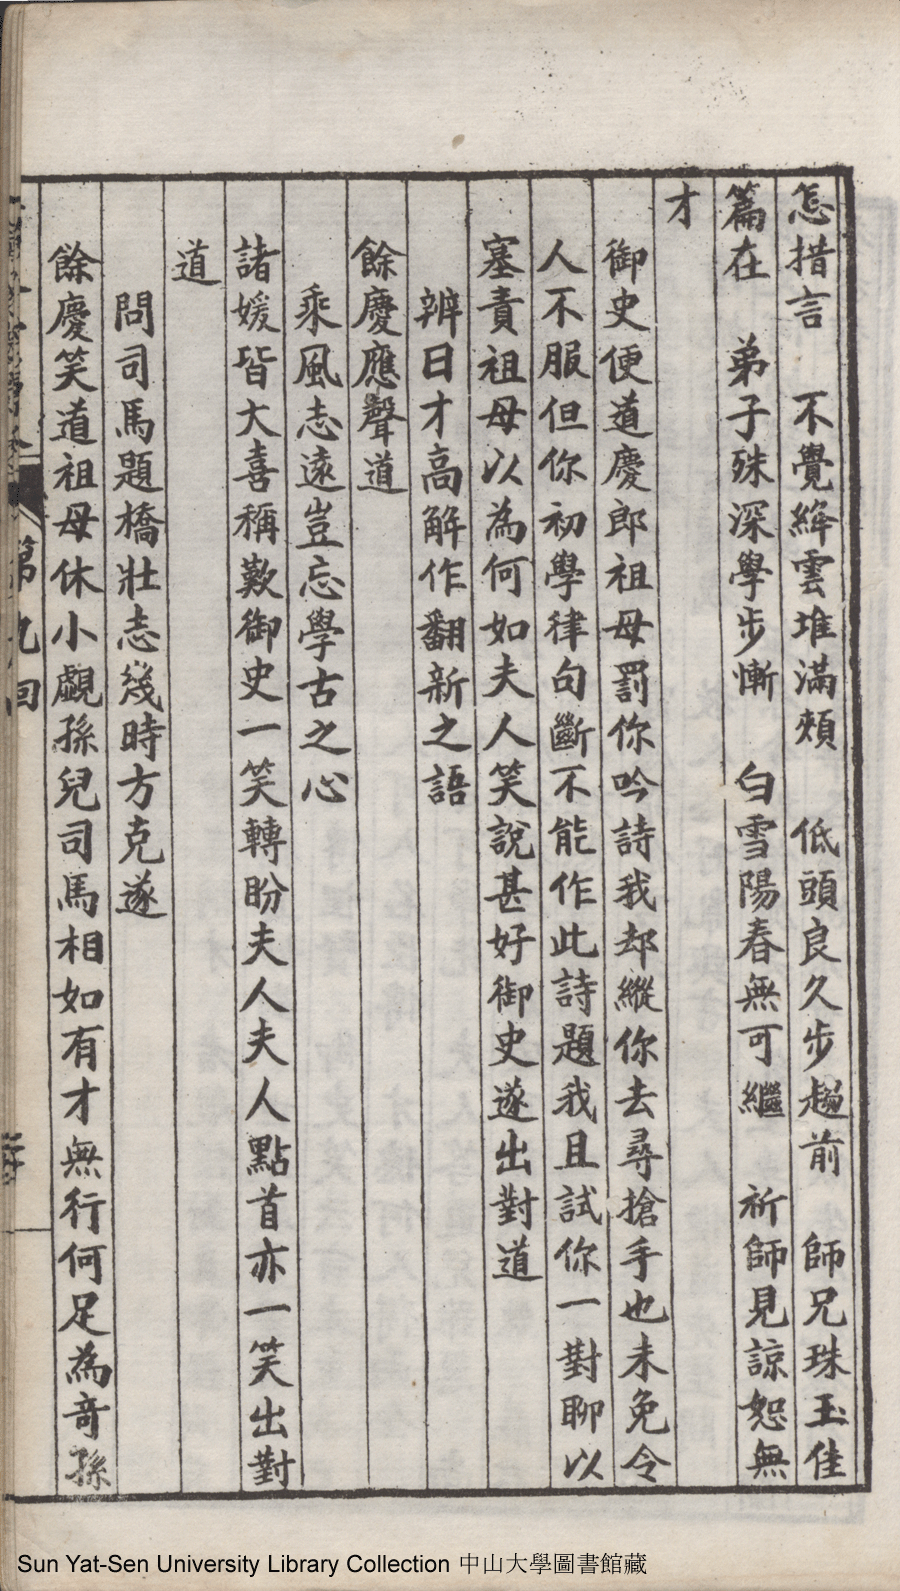 怎措言　不覺絳雲堆滿頰　低頭良久步趨前　師兄珠玉佳
篇在　弟子殊深學步慚　白雪陽春無可繼　祈師見諒恕無
才
御史便道慶郎祖母罰你吟詩我却縱你去尋搶手也未免令
人不服但你初學律句斷不能作此詩題我且試你一對聊以
塞責祖母以為何如夫人笑說甚好御史遂出對道
辨日才高解作翻新之語
餘慶應聲道
乘風志遠豈忘學古之心
諸媛皆大喜稱歎御史一笑轉盼夫人夫人點首亦一笑出對
道
問司馬題橋壯志幾時方克遂
餘慶笑道祖母休小覷孫兒司馬相如有才無行何足為奇孫
第九回
Sun Yat-Sen University Library Collection 中山大學圖書館藏